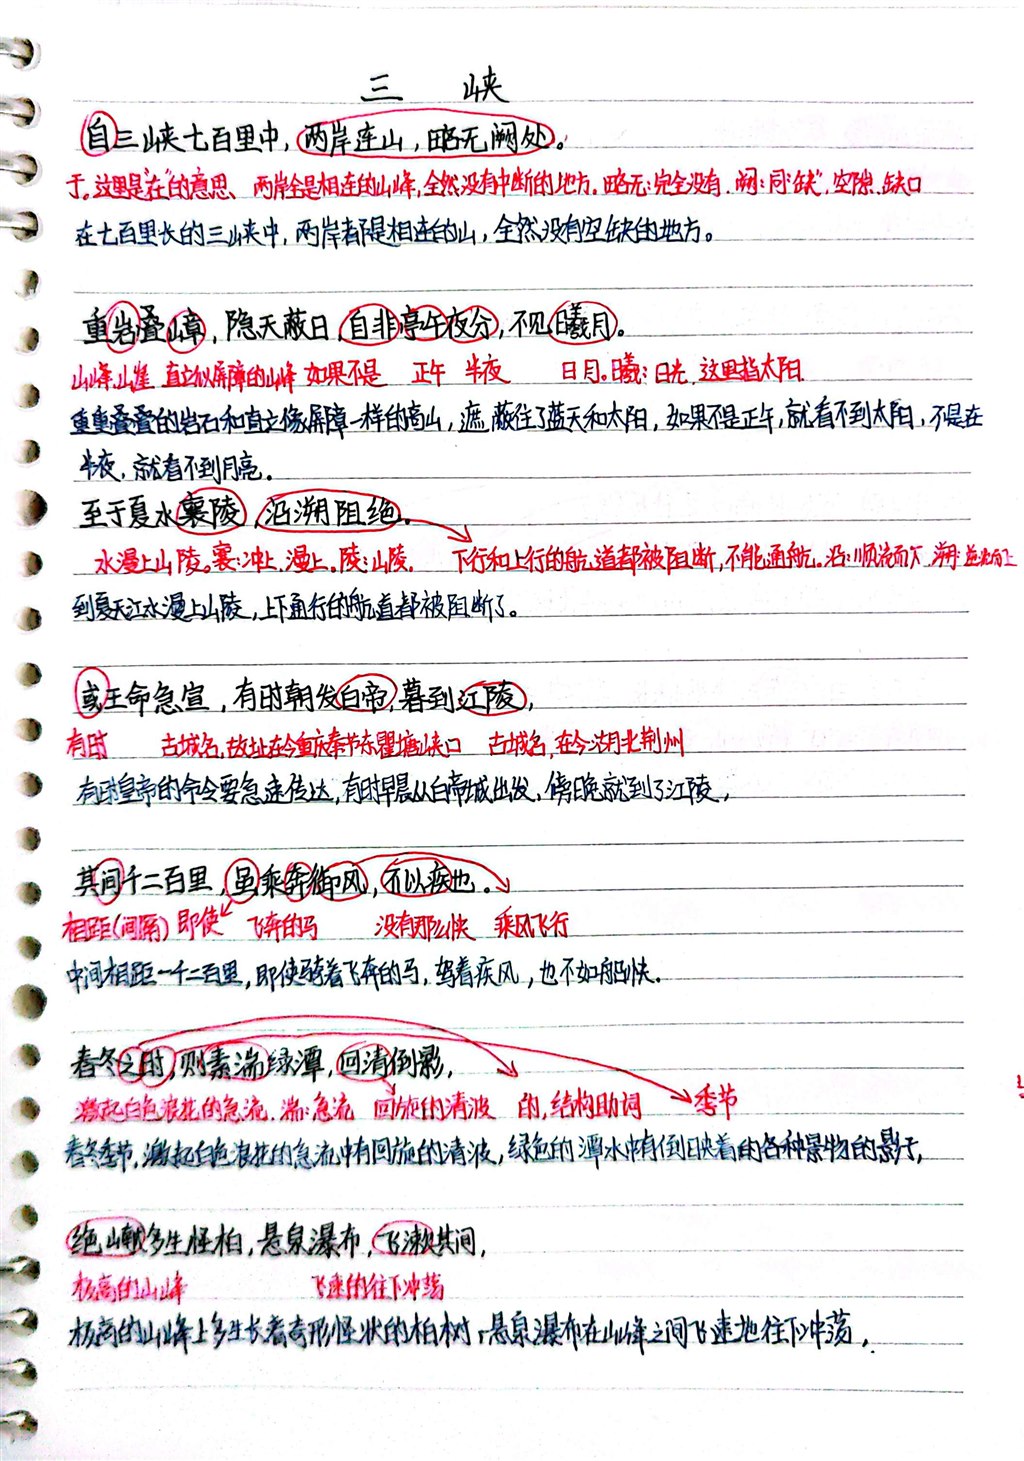 三 峡
自三峡七百里中，两岸连山，略无阙处。
于。这里是"在"的意思、 两岸全是相连的山峰，全然没有中断的地方。略无：完全没有．阙：同"缺"，空隙．缺口
在七百里长的三峡中，两岸都是相连的山，全然没有空缺的地方。
重岩叠嶂，隐天蔽日，自非亭午夜分，不见曦月。
山峰．山崖 直立似屏障的山峰 如果不是 正午 半夜 日月。曦：日光．这里指太阳．
重重叠叠的岩石和直立像屏障一样的高山，遮蔽住了蓝天和太阳，如果不是正午，就看不到太阳，不是在
半夜，就看不到月亮。
至于夏水襄陵，沿溯阻绝。
水漫上山陵。襄：冲上．漫上。陵：山陵． 下行和上行的航道都被阻断，不能通航。沿：顺流而下．溯：逆流而上
到夏天江水漫上山陵，上下通行的航道都被阻断了。
或王命急宣，有时朝发白帝，暮到江陵，
有时 古城名，故址在今重庆奉节东瞿塘峡口 古城名，在今湖北荆州
有时皇帝的命令要急速传达，有时早晨从白帝城出发，傍晚就到了江陵，
其间千二百里，虽乘奔御风，不以疾也。
相距（间隔） 即使 飞奔的马 没有那么快 乘风飞行
中间相距一千二百里，即使骑着飞奔的马，驾着疾风，也不如船快．
春冬之时，则素湍绿潭，回清倒影，
激起白色浪花的急流．湍：急流 回旋的清波 的，结构助词 季节
春冬季节，激起白色浪花的急流中有回旋的清波，绿色的潭水中有倒映着的各种景物的影子，
绝巘多生怪柏，悬泉瀑布，飞漱其间，
极高的山峰 飞速的往下冲荡
极高的山峰上多生长着奇形怪状的柏树，悬泉瀑布在山峰之间飞速地往下冲荡，